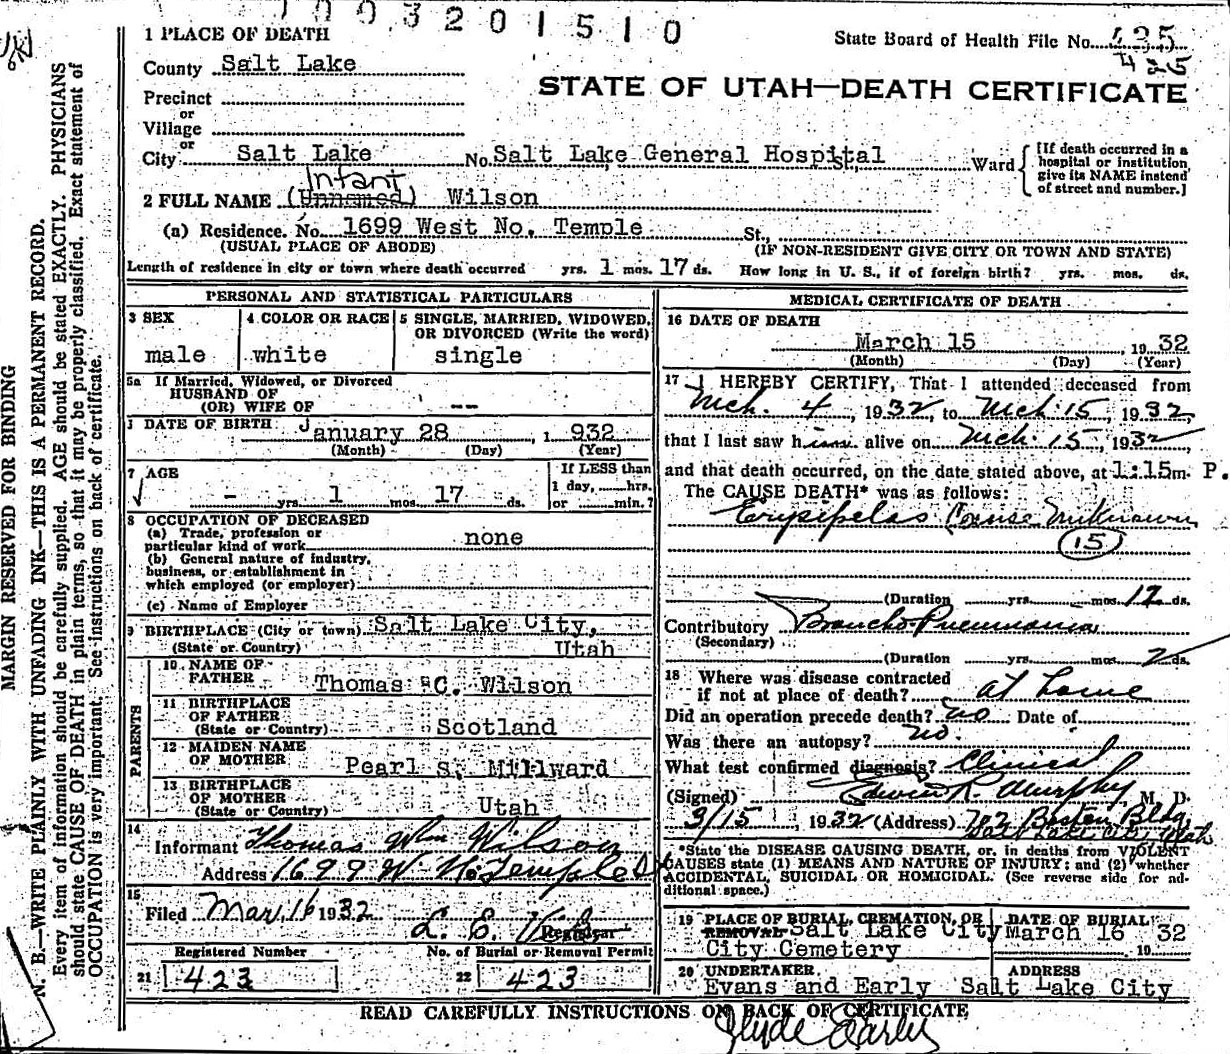 1003201510
1 PLACE OF DEATH
State Board of Health File No. 435
425
County Salt Lake
STATE OF UTAH—DEATH CERTIFICATE
Precinct
or
Village
or
City Salt Lake No. Salt Lake General Hospital St., Ward
[If death occurred in a
hospital or institution,
give its NAME instead
of street and number.]
Infant
2 FULL NAME (Unnamed) Wilson
(a) Residence. No. 1699 West No. Temple St.,
(USUAL PLACE OF ABODE) (IF NON-RESIDENT GIVE CITY OR TOWN AND STATE)
Length of residence in city or town where death occurred yrs. 1 mos. 17 ds. How long in U. S., if of foreign birth? yrs. mos. ds.
PERSONAL AND STATISTICAL PARTICULARS
3 SEX
male
4 COLOR OR RACE
white
5 SINGLE, MARRIED, WIDOWED,
OR DIVORCED (Write the word)
single
5a If Married, Widowed, or Divorced
HUSBAND OF
(OR) WIFE OF --
DATE OF BIRTH January 28, 1932
(Month) (Day) (Year)
7 AGE
- yrs. 1 mos. 17 ds.
If LESS than
1 day, hrs.
or min.?
8 OCCUPATION OF DECEASED
(a) Trade, profession or
particular kind of work none
(b) General nature of industry,
business, or establishment in
which employed (or employer)
(c) Name of Employer
9 BIRTHPLACE (City or town) Salt Lake City,
(State or Country) Utah
PARENTS
10 NAME OF
FATHER Thomas C. Wilson
11 BIRTHPLACE
OF FATHER
(State or Country) Scotland
12 MAIDEN NAME
OF MOTHER Pearl S. Millward
13 BIRTHPLACE
OF MOTHER
(State or Country) Utah
14
Informant Thomas Wm Wilson
Address 1699 W No Temple St
15
Filed Mar 16 1932
L. E.
Registrar
Registered Number
21 423
No. of Burial or Removal Permit
22 423
MEDICAL CERTIFICATE OF DEATH
16 DATE OF DEATH
March 15 1932
(Month) (Day) (Year)
17 I HEREBY CERTIFY, That I attended deceased from
Mch. 4, 1932, to Mch. 15, 1932,
that I last saw him alive on Mch. 15, 1932
and that death occurred, on the date stated above, at 1:15 m. P.
The CAUSE DEATH* was as follows:
Erysipelas Cause Unknown
15
(Duration yrs. mos. 12 ds.
Contributory Broncho Pneumonia
(Secondary)
(Duration yrs. mos. 2 ds.
18 Where was disease contracted
if not at place of death? at home
Did an operation precede death? no Date of
Was there an autopsy? no.
What test confirmed diagnosis? Clinical
(Signed) Edwin R. Murphy M. D.
3/15, 1932 (Address) 702 Boston Bldg
Salt Lake City Utah
*State the DISEASE CAUSING DEATH, or in deaths from VIOLENT
CAUSES state (1) MEANS AND NATURE OF INJURY; and (2) whether
ACCIDENTAL, SUICIDAL OR HOMICIDAL. (See reverse side for ad-
ditional space.)
19 PLACE OF BURIAL, CREMATION, OR
REMOVAL Salt Lake City
City Cemetery
DATE OF BURIAL
March 16 1932
20 UNDERTAKER
Evans and Early
ADDRESS
Salt Lake City
READ CAREFULLY INSTRUCTIONS ON BACK OF CERTIFICATE
Clyde Early
MARGIN RESERVED FOR BINDING
N. B.—WRITE PLAINLY WITH UNFADING INK—THIS IS A PERMANENT RECORD.
Every item of information should be carefully supplied. AGE should be stated EXACTLY. PHYSICIANS
should state CAUSE OF DEATH in plain terms, so that it may be properly classified. Exact statement of
OCCUPATION is very important. See instructions on back of certificate.